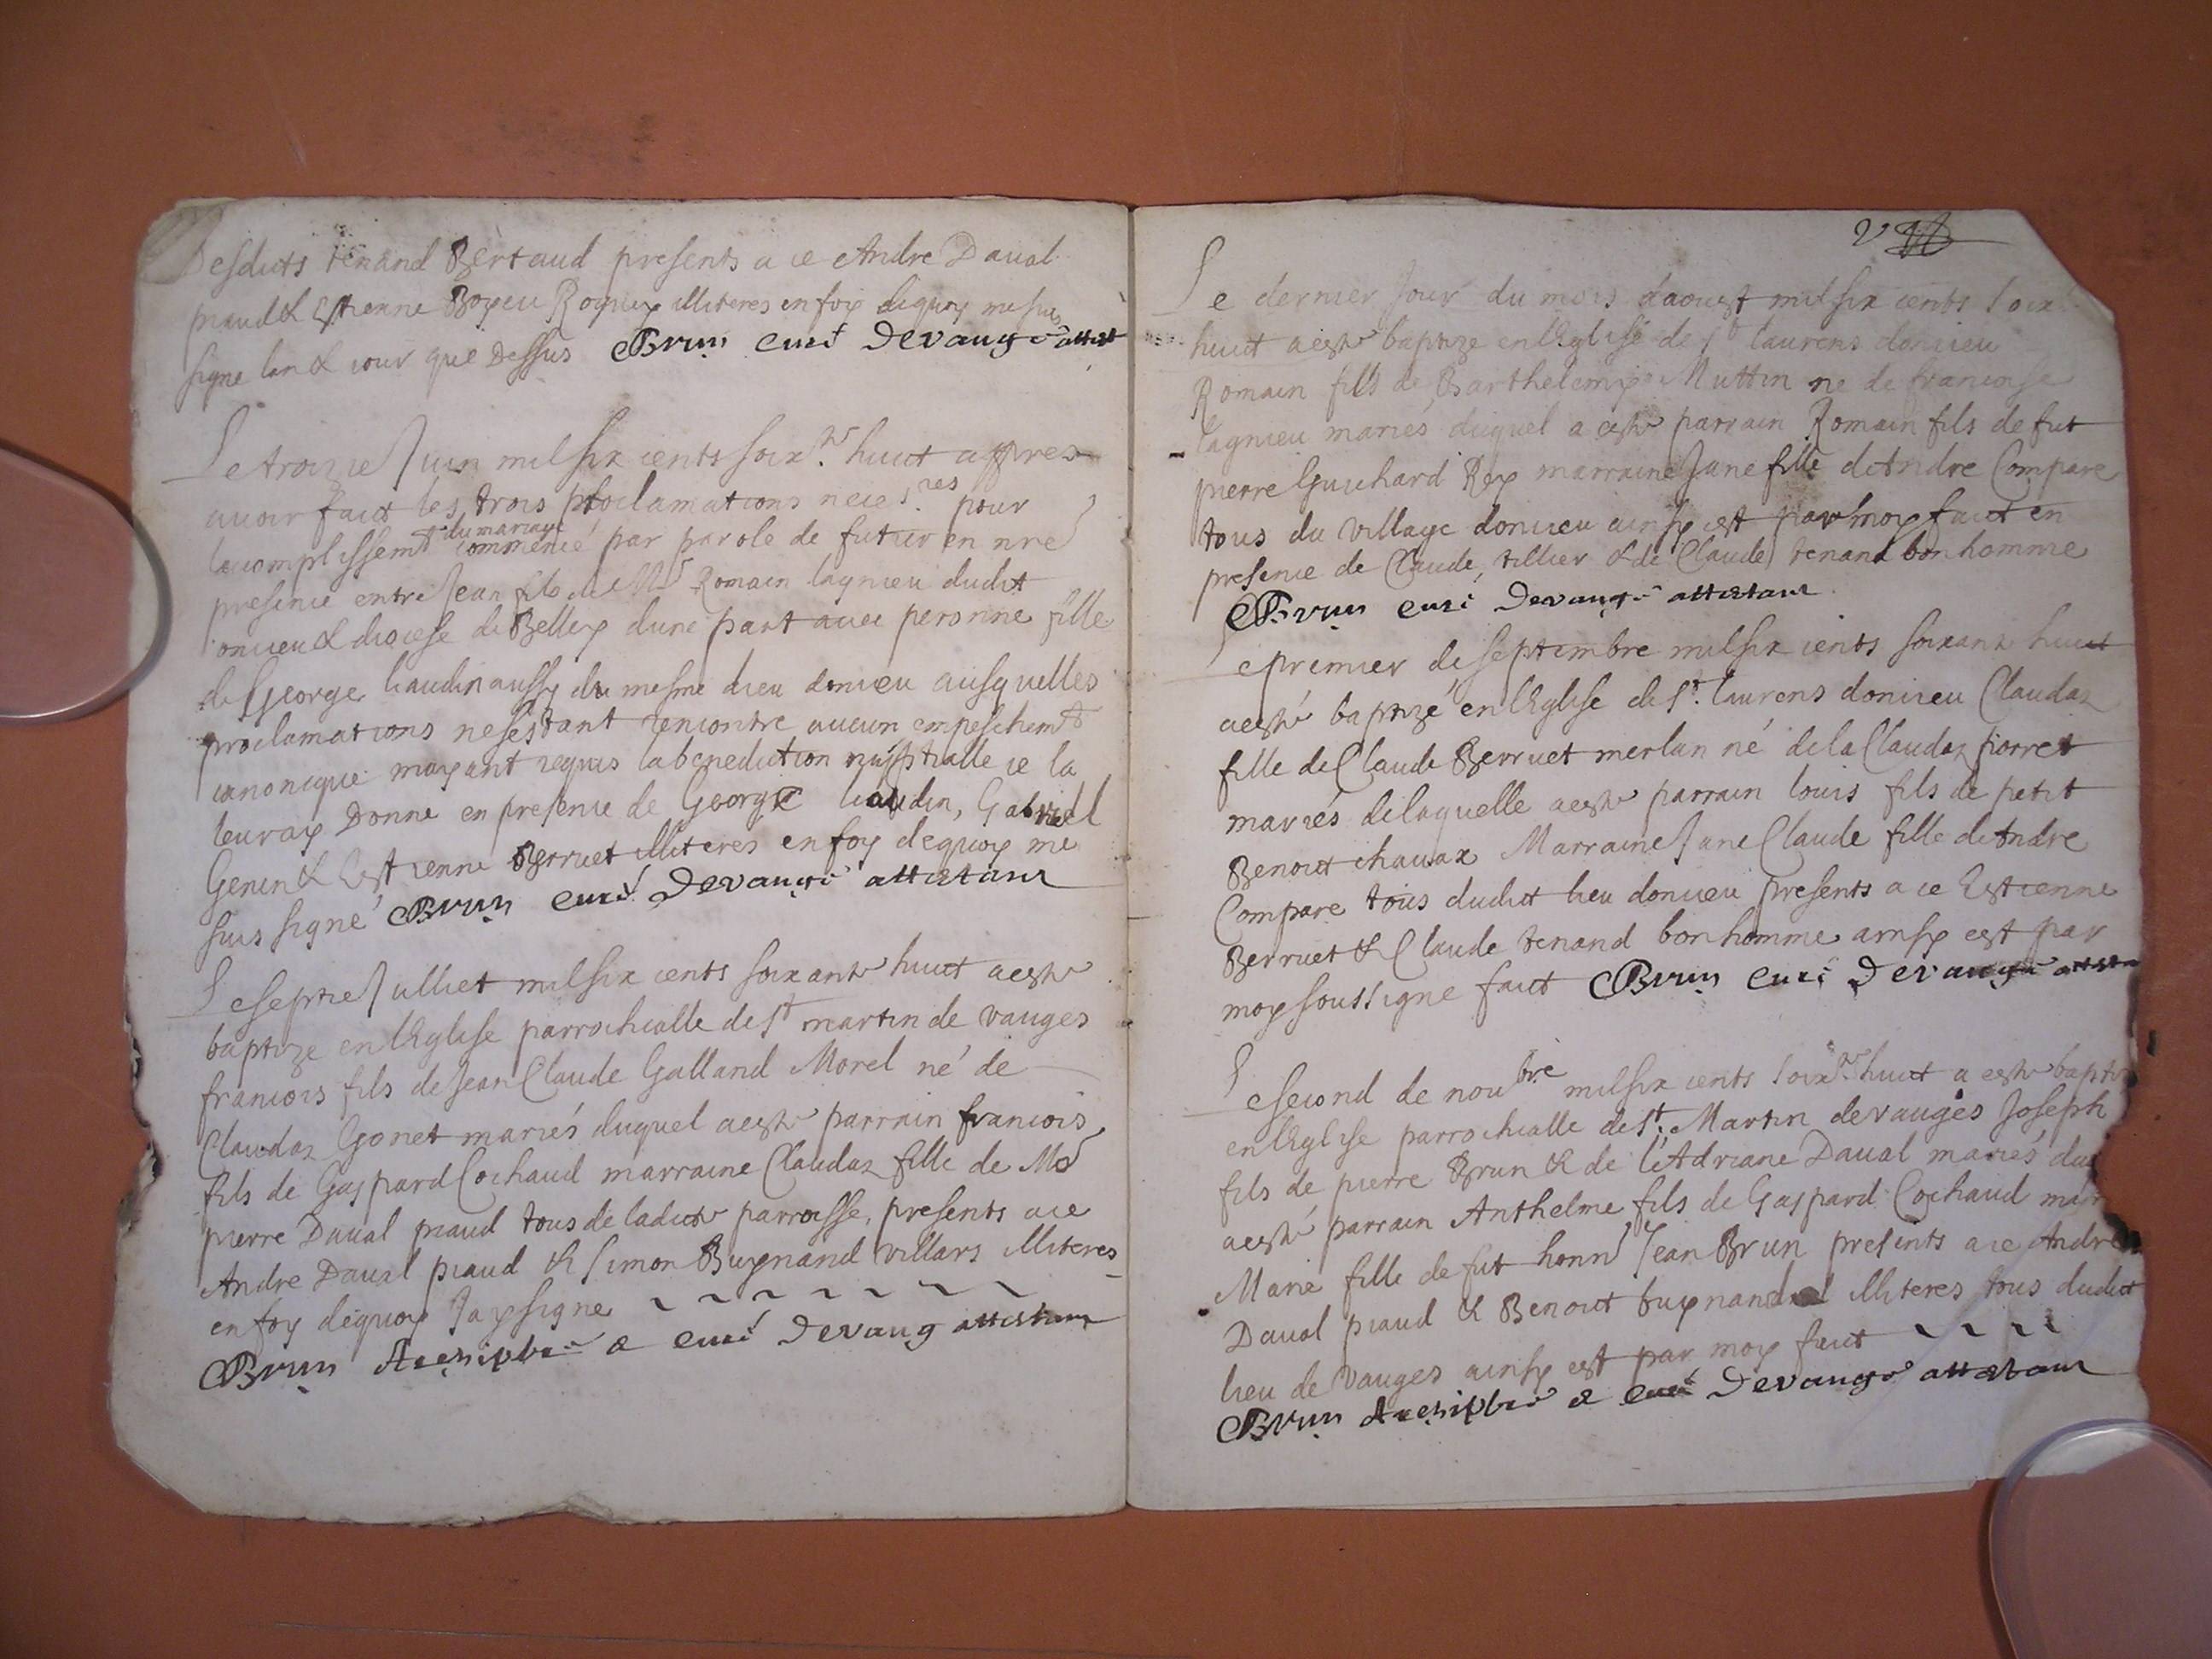 Desdicts tenand Bertaud presents a ce Andre Daual
piaud & Estienne Boyeu Roquey illiteres en foy dequoy me suis
signe lan & iour que Dessus Brun curé Devauge attest
Le troizie Juin mil six cents soixte. huict appres
auoir faict les trois proclamations neces.res pour
lacomplissemt du mariage commencé par parole de futur en nre
presence entre Jean fils de Mr Romain lagnieu dudit
onuieu & diocese de Belley dune part auec peronne fille
de George liaudin aussy du mesme lieu donieu ausquelles
proclamations nesestant rencontre aucun empeschemt
canonique mayant requis la benediction nuptialle ie la
leur ay Donne en presence de George liaudin, Gabriel
Genin & Estienne Berruet illiteres en foy dequoy me
suis signé Brun curé Devauge attestant
Le septie Julliet mil six cents soixante huict a este
baptize en lEglise parrochialle de St martin de vauges
francois fils de Jean Claude Galland Morel né de
Claudaz Gonet mariés duquel a este parrain francois
fils de Gaspard Cochaud marraine Claudaz fille de Mr
pierre Daual piaud tous de ladicte parroisse, presents a ce
Andre Daual piaud & Simon Buynand villars illiteres
en foy dequoy Jay signe ~ ~ ~ ~ ~ ~ ~
Brun Archiptre & curé Devaug attestant
Le dernier Jour du mois daoust mil six cents soix
huict a este baptize en lEglise de St laurens donieu
Romain fils de Barthelemy Muttin ne de francoise
lagnieu mariés duquel a este parrain Romain fils de fut
pierre Guichard Rey marraine Jane fille dAndre Compare
tous du village donieu ainsy est par moy faict en
presence de Claude tillier & de Claude tenand bonhomme
Brun curé Devauge attestant
Le premier de septembre mil six cents soixante huict
a esté baptizé en lEglise de St. laurens donieu Claudaz
fille de Claude Berruet merlan né de la Claudaz fiorret
mariés de laquelle a este parrain louis fils de petit
Benoit chauaz Marraine Jane Claude fille dAndre
Compare tous dudict lieu donieu presents a ce Estienne
Berruet & Claude tenand bonhomme ainsy est par
moy soussigne faict Brun curé Devauge attesta
Le second de noubre mil six cents soixte. huict a este bapti
en lEglise parrochialle de St. Martin de vauges Joseph
fils de pierre Brun & de lAdriane Daual mariés du
a esté parrain Anthelme fils de Gaspard Cochaud mar
Marie fille de fut honn Jean Brun presents a ce Andre
Daual piaud & Benoit buynand illiteres tous dudict
lieu de vauges ainsy est par moy faict ~ ~ ~ ~
Brun Archiptre & curé Devauge attestant